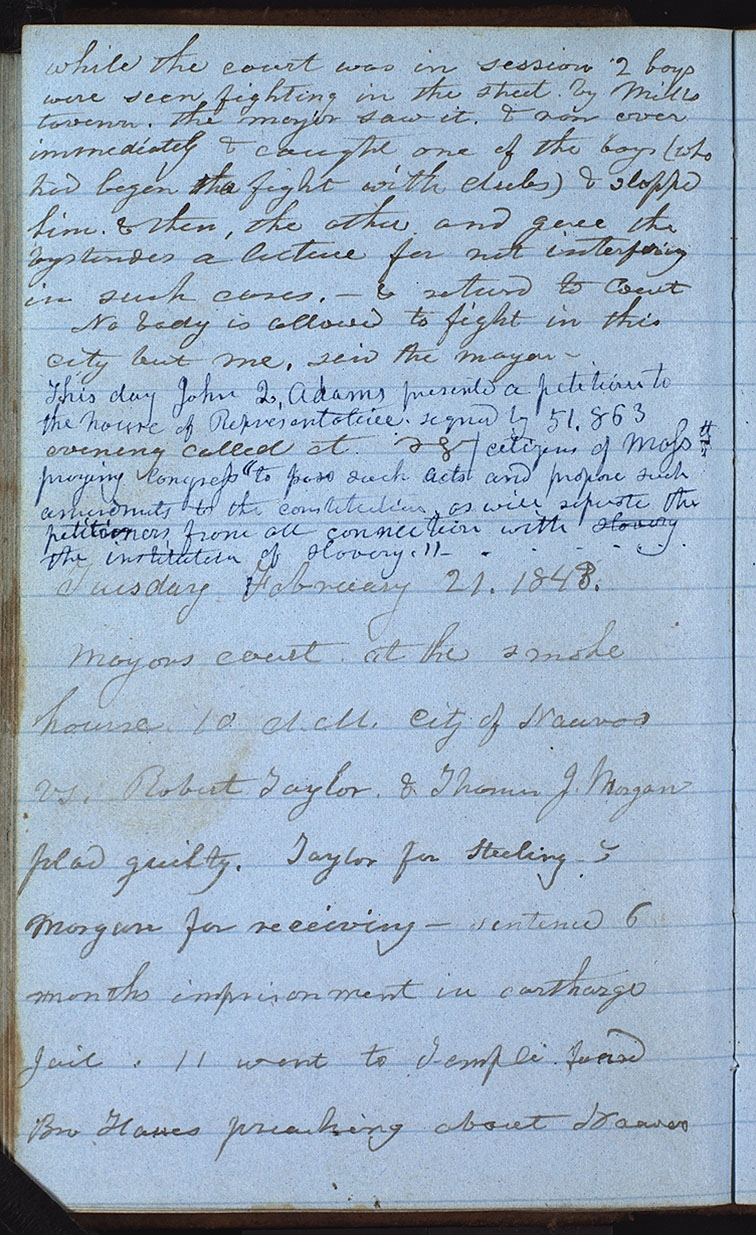 while the court was in session 2 boys
were seen fighting in the street. by Mills
tavern. the mayor saw it. & ran over
immediately & caught one of the boys (who
had began the fight with clubs) & stopped
him. & then, the other. and gave the
bystanders a lecture for not interfering
in such cases. — & returd to court
No body is allowed to fight in this
city but me, said the mayor —
This day John Q, Adams presentd a petition to
the house of Representative. signed by 51.863
evening called at
citizens of Mass tts
praying Congress "to pass such acts and propose such
amendments to the constitution, as will seperate the
petitioners from all connection with slavery
the institution of slavery. !!—
Tuesday February 21. 1843.
Mayors court. at the smoke
house. 10 A.M. City of Nauvoo
vs. Robert Taylor. & Thomas J. Morgan
plad guilty. Taylor for steeling &
Morgan for receiving — sentencd 6
months imprisonment in carthage
Jail. 11 went to Temple found
Bro Hawes preaching about Nauvoo